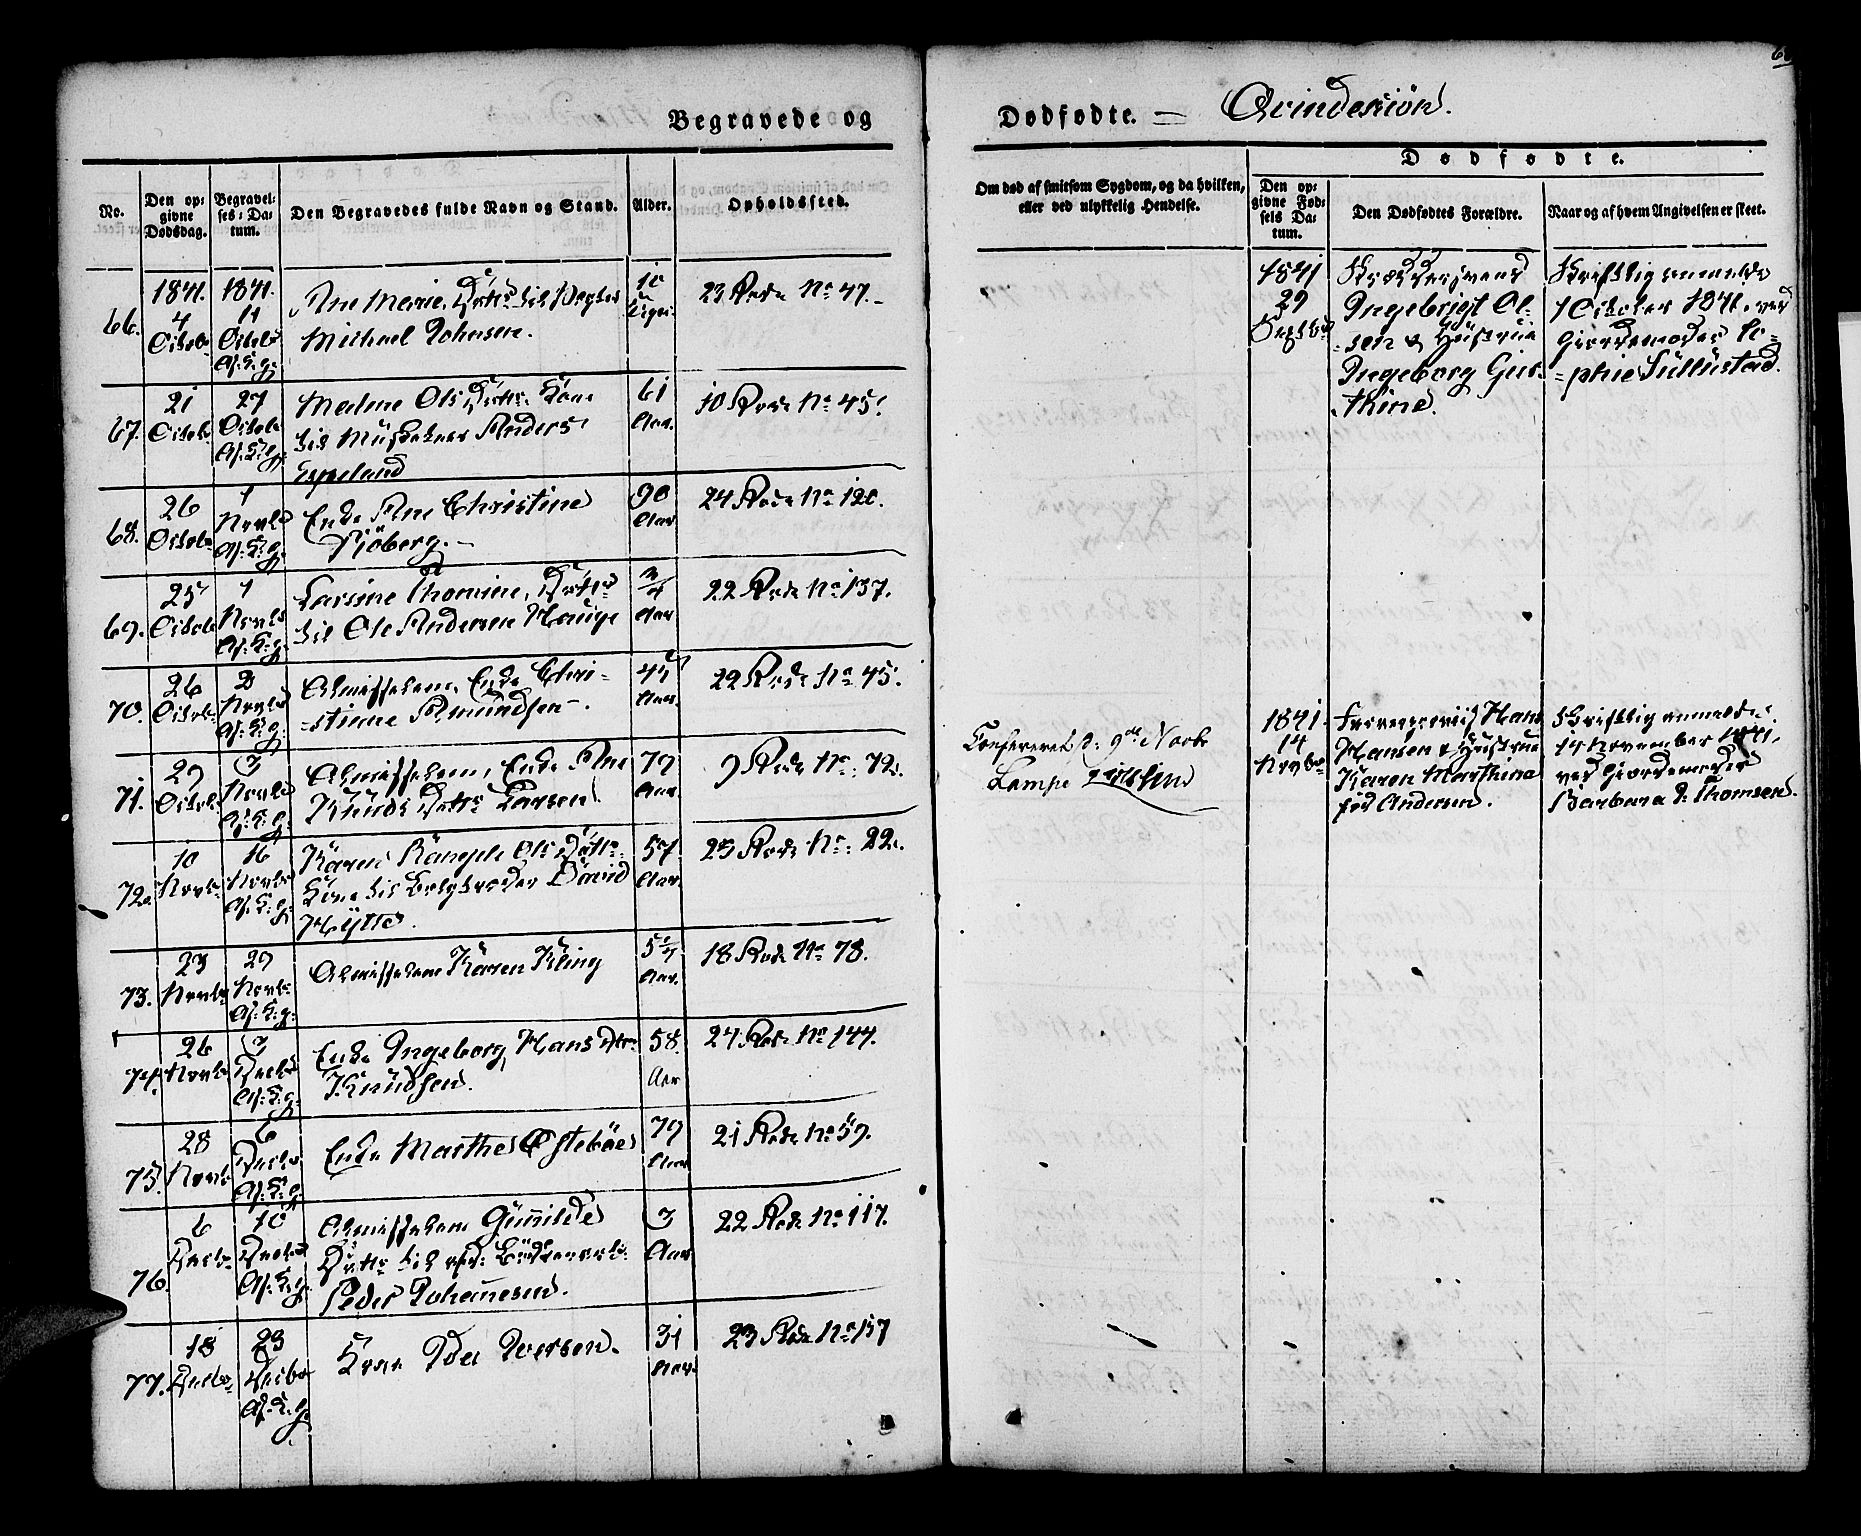 Begravede og
No.
Den op-
givne
Dødsdag.
Begravel-
ses-Da-
tum.
Den Begravedes fulde Navn og Stand.
Alder.
Opholdssted.
66.
1841.
4
Octob
1841.
11
Octob
Af. K. g.
Ane Marie, Dotter til
Michael Johnsen.
10
23 Rode No 47.
67.
21
Octob
27
Octob
Af. K. g.
Malene Ols Dotter Kone
til Musketeer Anders
Espeland
61
Aar.
10 Rode No 45.
68.
26
Octob
1
Novbr
Af. K. g.
Enke Ane Christine
Sjöberg.
90
Aar
24 Rode No 120.
69.
25
Octob
1
Novbr
Af. K. g.
Larsine Thomine, Dotter
til Ole Andersen Hauge
3/4
Aar
22 Rode No 137.
70.
26
Octob
2
Novbr
Af. K. g.
Almisselem, Enke Chri-
stinne Amundsen.
45
Aar
22 Rode No 45.
71.
29
Octob
3
Novbr
Af. K. g.
Almisselem, Enke Ane
Knuds Dotter Larsen.
79
Aar.
9 Rode No: 72.
72.
10
Novbr
16
Novbr
Af. K. g.
Karen Ols Dotter
Kone til David
Hytte.
57
Aar.
25 Rode No: 22.
73.
23
Novbr
29
Novbr
Af. K. g.
Almisselem Karen Kling
Aar.
18 Rode No 78.
74.
26
Novbr
3
Decbr
Af. K. g.
Enke Ingeborg Hans Dtr
Knudsen.
58.
Aar
24 Rode No 144.
75.
28
Novbr
6
Decbr
Af. K. g.
Enke Marthe Østebøe
79
Aar
21 Rode No 59.
76.
6
Decbr
10
Decbr
Af. K. g.
Almisselem Gunilde
Dotter til
Peder Johannesen.
3
Aar
22 Rode No 117.
77.
18
Decbr
23
Decbr
Af. K. g.
Kone Iversen.
31
Aar.
23 Rode No 137
Dødfødte. = Qvindekiön.
Om død af smitsom Sygdom, og da hvilken,
eller ved ulykkelig Hendelse.
Dødfødte.
Den op-
givne Fød-
sels Da-
tum.
Den Dødfødtes Forældre.
Naar og af hvem Angivelsen er skeet.
1841
29
Ingebrigt Ol-
sen & Hustrue
Ingeborg Gur-
thine.
Skriftlig anmeldt
1 October 1841, ved
Giordemoder So-
phie Sullustad.
1841.
14
Novbr
Hans
Hansen & Hustrue
Karen Marthine
fød Andersen.
Skriftlig anmeldt
14 November 1841,
ved Giordemoder
Barbara S. Thomsen.
Confereret d: 9de Novbr
Lampe